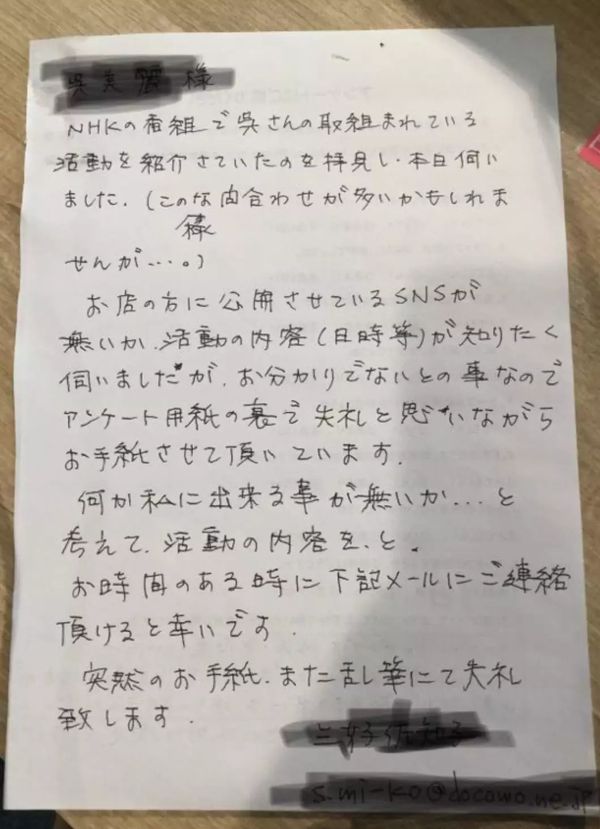 NHKの番組で呉さんの取組まれている
活動を紹介さていたのを拝見し、本日伺い
ました。(このな問合わせが多いかもしれま
様
せんが…。)
お店の方に公開させているSNSが
無いか、活動の内容(日時等)が知りたく
伺いましたが、お分かりでないとの事なので
アンケート用紙の裏で失礼と思いながら
お手紙させて頂いています。
何か私に出来る事が無いか...と
考えて、活動の内容を、と。
お時間のある時に下記メールにご連絡
頂けると幸いです。
突然のお手紙、また乱し筆にて失礼
致します。